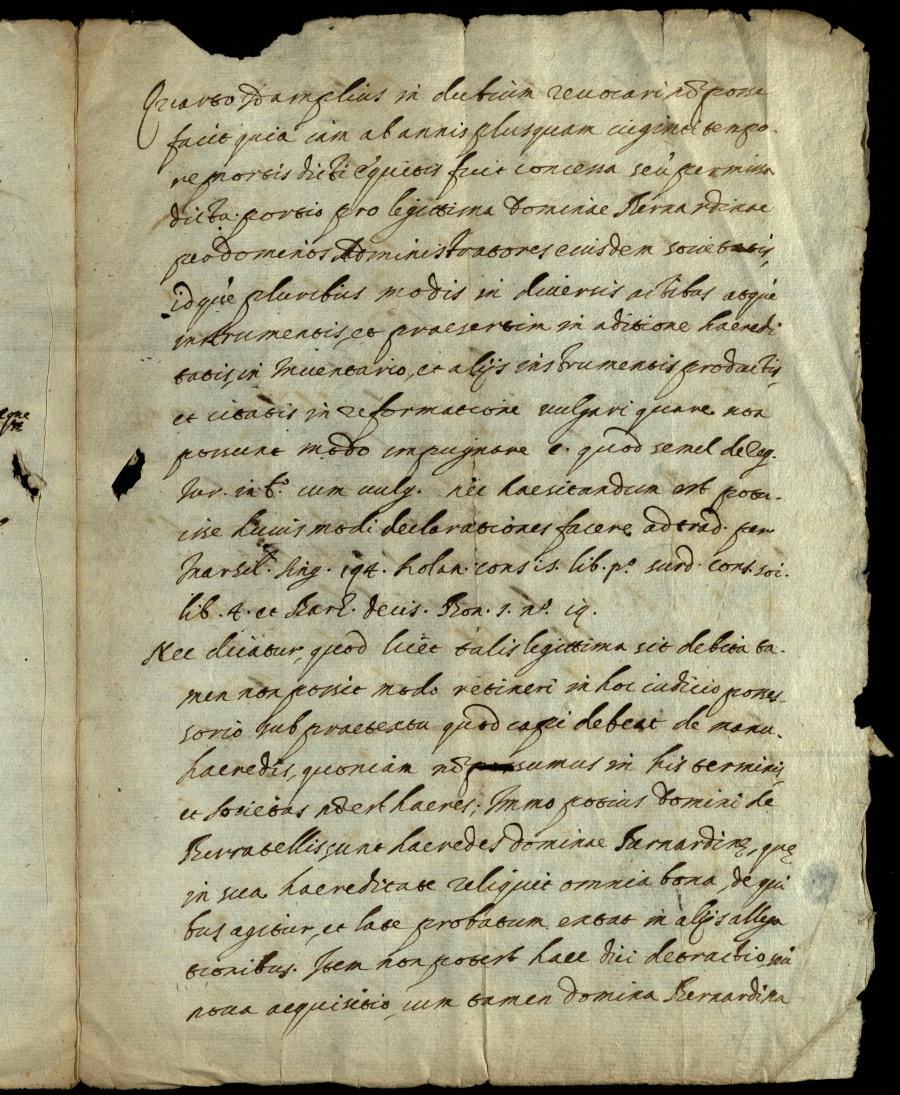 Quarto Et amplius in dubium revocari nō posse
facit quia iam ab annis plusquam viginti tempo-
re mortis dicti Equitis fuit concessa seù permissa
dicta portio pro legittima Dominae Bernardinae
per Dominos Administratores eiusdem societatis,
idque pluribus modis in diversis actibus atque
instrumentis, et praesertim in aditione haeredi
tatis, in Inventario, et alijs instrumentis productis,
et citatis in reformatione vulgari quare non
possunt modo impugnare c. quod semel de Reg.
Iur. in 6.º cum vulg. nec haesitandum est potu-
isse huius modi declarationes facere ad trad. per
Marsil. sing. 194. Rolan. cons. is. lib. p.º surd. cons. 301.
lib. 4. et decis. n.º 19.
Nec dicatur, quod licèt talis legittima sit debita ta-
men non possit modo retineri in hoc iudicio posses-
sorio sub praetextu quod capi debeat de manu
haeredis, quoniam nō sumus in his terminis,
et societas nō est haeres; Immo potius Domini de
Berratellis sunt haeredes Dominae Bernardinę, quę
in sua haereditate reliquit omnia bona, de qui
bus agitur, et late probatum extat in alijs allega
tionibus. Item non potest haec dici detractio, seù
nova aequisitio, cum tamen Domina Bernardina
egne